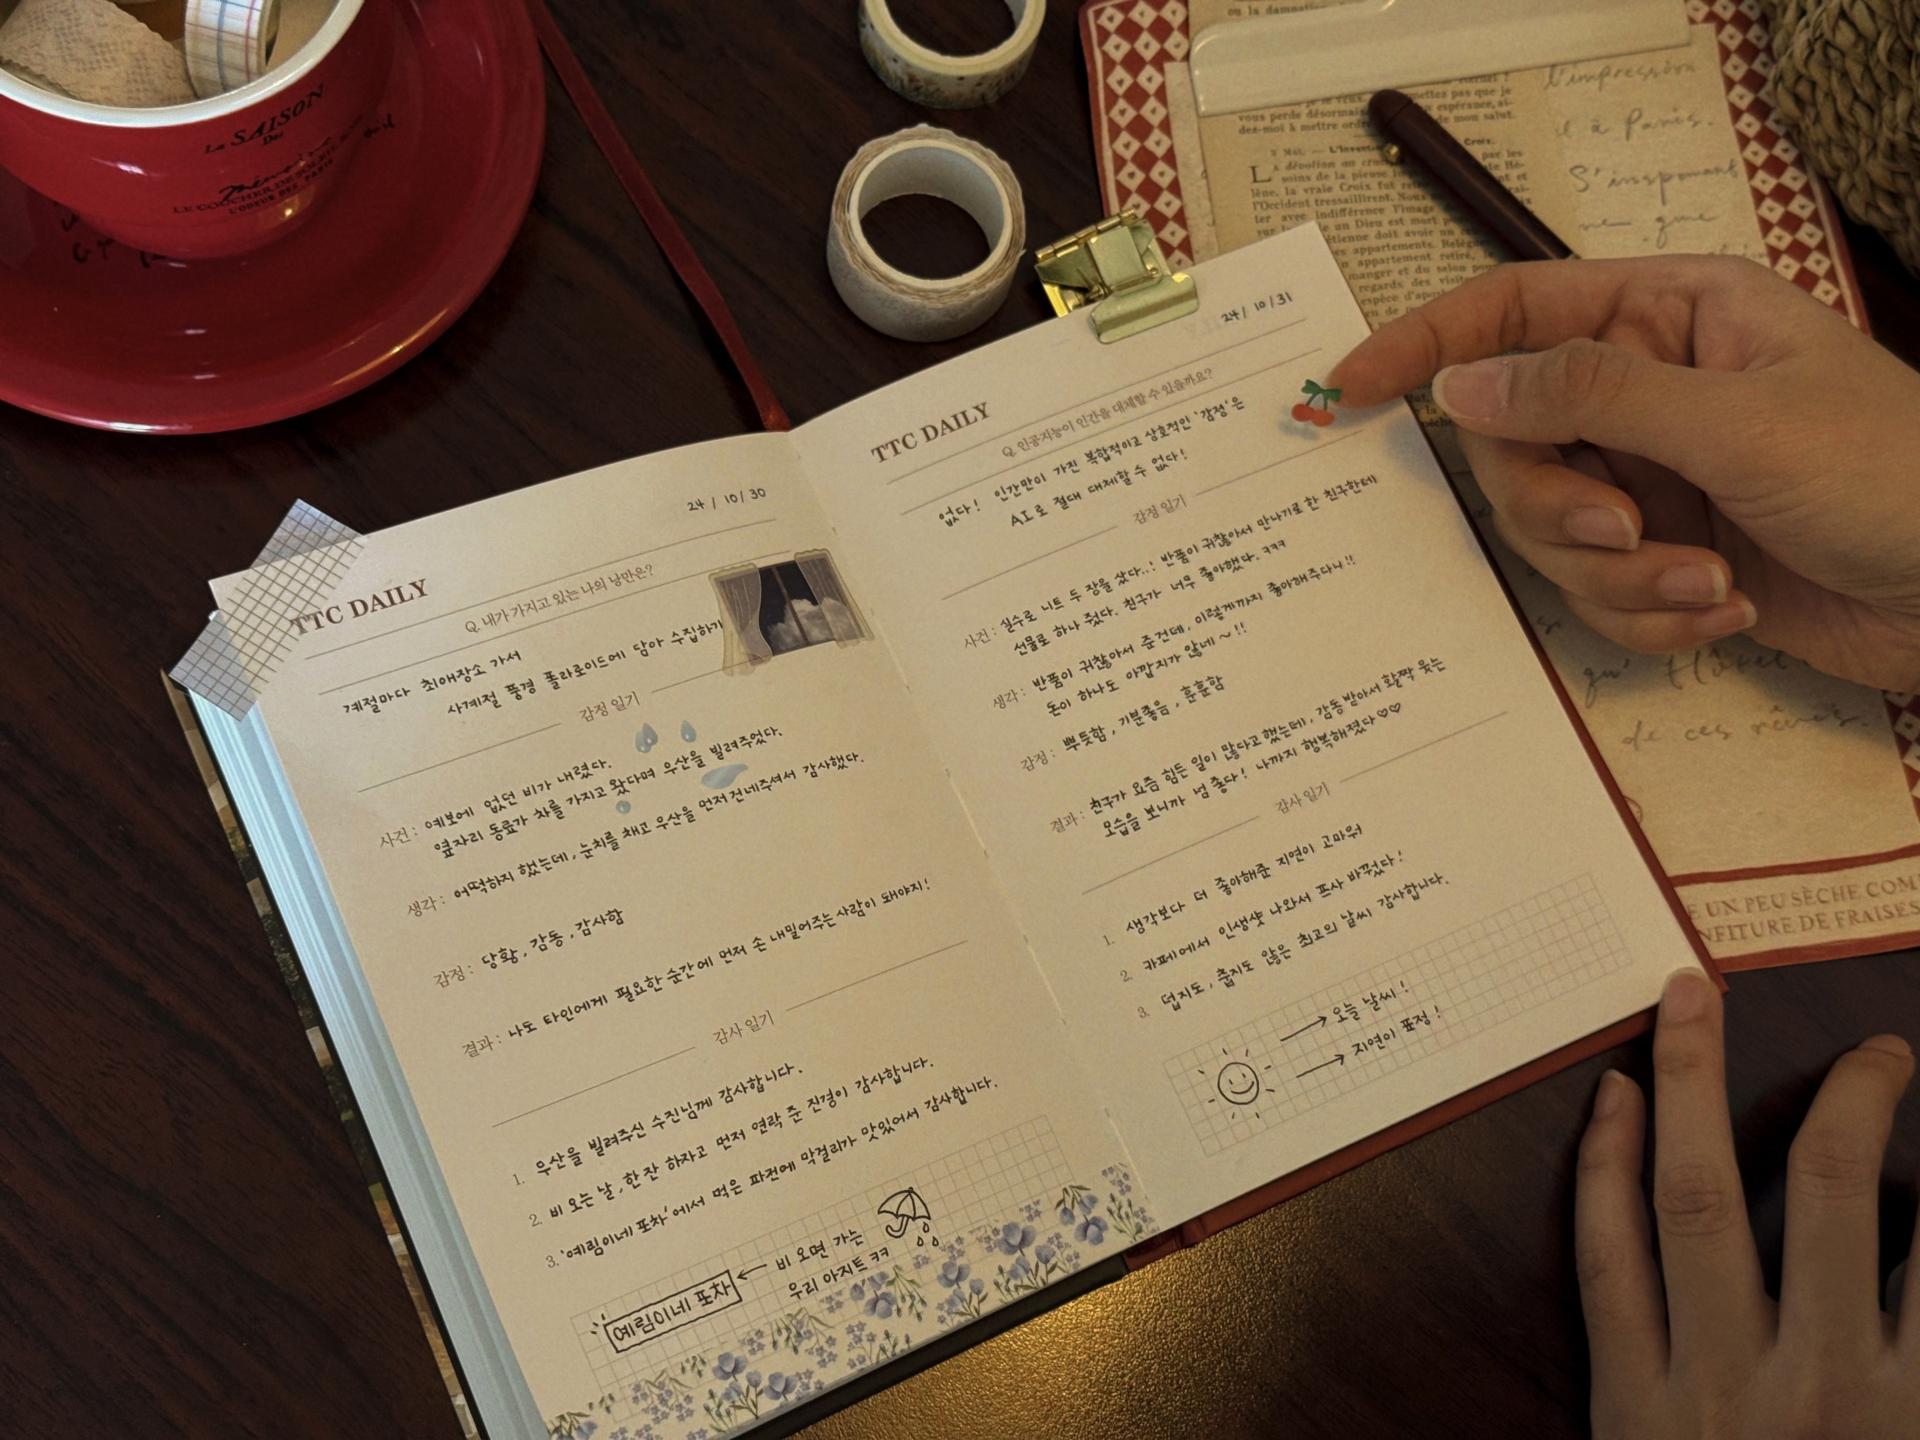 La SAISON
Des
Mémoire
LE COUCHER DE SOLEIL
L'ODEUR DES PARIS
24 / 10 / 30
TTC DAILY
Q. 내가 가지고 있는 나의 낭만은?
계절마다 최애장소 가서
사계절 풍경 폴라로이드에 담아 수집하기
감정 일기
사건 : 예보에 없던 비가 내렸다.
옆자리 동료가 차를 가지고 왔다며 우산을 빌려주었다.
생각 : 어떡하지 했는데, 눈치를 채고 우산을 먼저 건네주셔서 감사했다.
감정 : 당황, 감동, 감사함
결과 : 나도 타인에게 필요한 순간에 먼저 손 내밀어주는 사람이 돼야지!
감사 일기
1. 우산을 빌려주신 수진님께 감사합니다.
2. 비 오는 날, 한 잔 하자고 먼저 연락 준 진경이 감사합니다.
3. '예림이네 포차'에서 먹은 파전에 막걸리가 맛있어서 감사합니다.
예림이네 포차 ← 비 오면 가는
우리 아지트 ㅋㅋ
24 / 10 / 31
TTC DAILY
Q. 인공지능이 인간을 대체할 수 있을까요?
없다! 인간만이 가진 복합적이고 상호적인 '감정'은
AI로 절대 대체할 수 없다!
감정 일기
사건 : 실수로 니트 두 장을 샀다..! 반품이 귀찮아서 만나기로 한 친구한테
선물로 하나 줬다. 친구가 너무 좋아했다. ㅋㅋㅋ
생각 : 반품이 귀찮아서 준건데, 이렇게까지 좋아해주다니!!
돈이 하나도 아깝지가 않네~!!
감정 : 뿌듯함, 기분좋음, 훈훈함
결과 : 친구가 요즘 힘든 일이 많다고 했는데, 감동받아서 활짝 웃는
모습을 보니까 넘 좋다! 나까지 행복해졌다♡♡
감사 일기
1. 생각보다 더 좋아해준 지연이 고마워
2. 카페에서 인생샷 나와서 프사 바꿨다!
3. 덥지도, 춥지도 않은 최고의 날씨 감사합니다.
→ 오늘 날씨!
→ 지연이 표정!
ou la damnation
vous perde désormais
dez-moi à mettre ordre
de mon salut.
3 Mai. — L'Invention
Croix.
l'impression
à Paris.
S'inspirant
que
qu' Hôtel
de ces rêves.
UN PEU SÈCHE
DE FRAISES